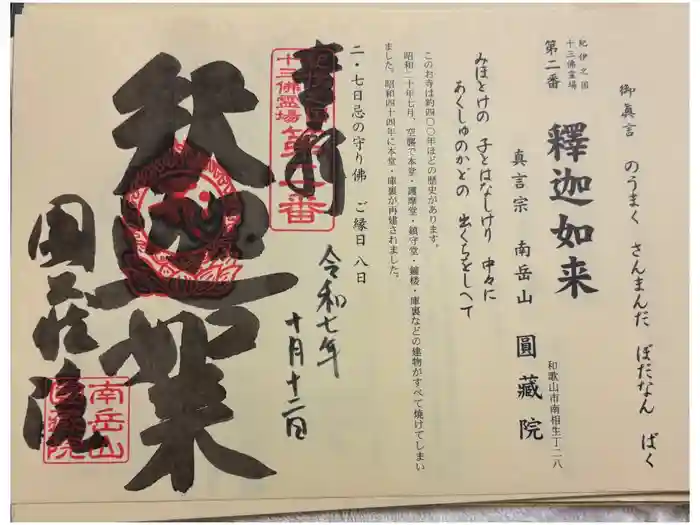 御真言 のうまく さんまんだ ぼだなん ばく
紀伊之国
十三佛霊場
第二番
釋迦如来
真言宗 南岳山 圓藏院
和歌山市南相生丁二八
みほとけの 子とはなしけり 中々に
あくしゅのかどの 出くちをしへて
このお寺は約四〇〇年ほどの歴史があります。
昭和二十年七月、空襲で本堂・護摩堂・鎮守堂・鐘楼・庫裏などの建物がすべて焼けてしまい
ました。昭和四十四年に本堂・庫裏が再建されました。
二・七日忌の守り佛 ご縁日 八日
奉拝
令和七年
十月十二日
十三佛霊場
第二番
釈迦如来
圓蔵院
南岳山